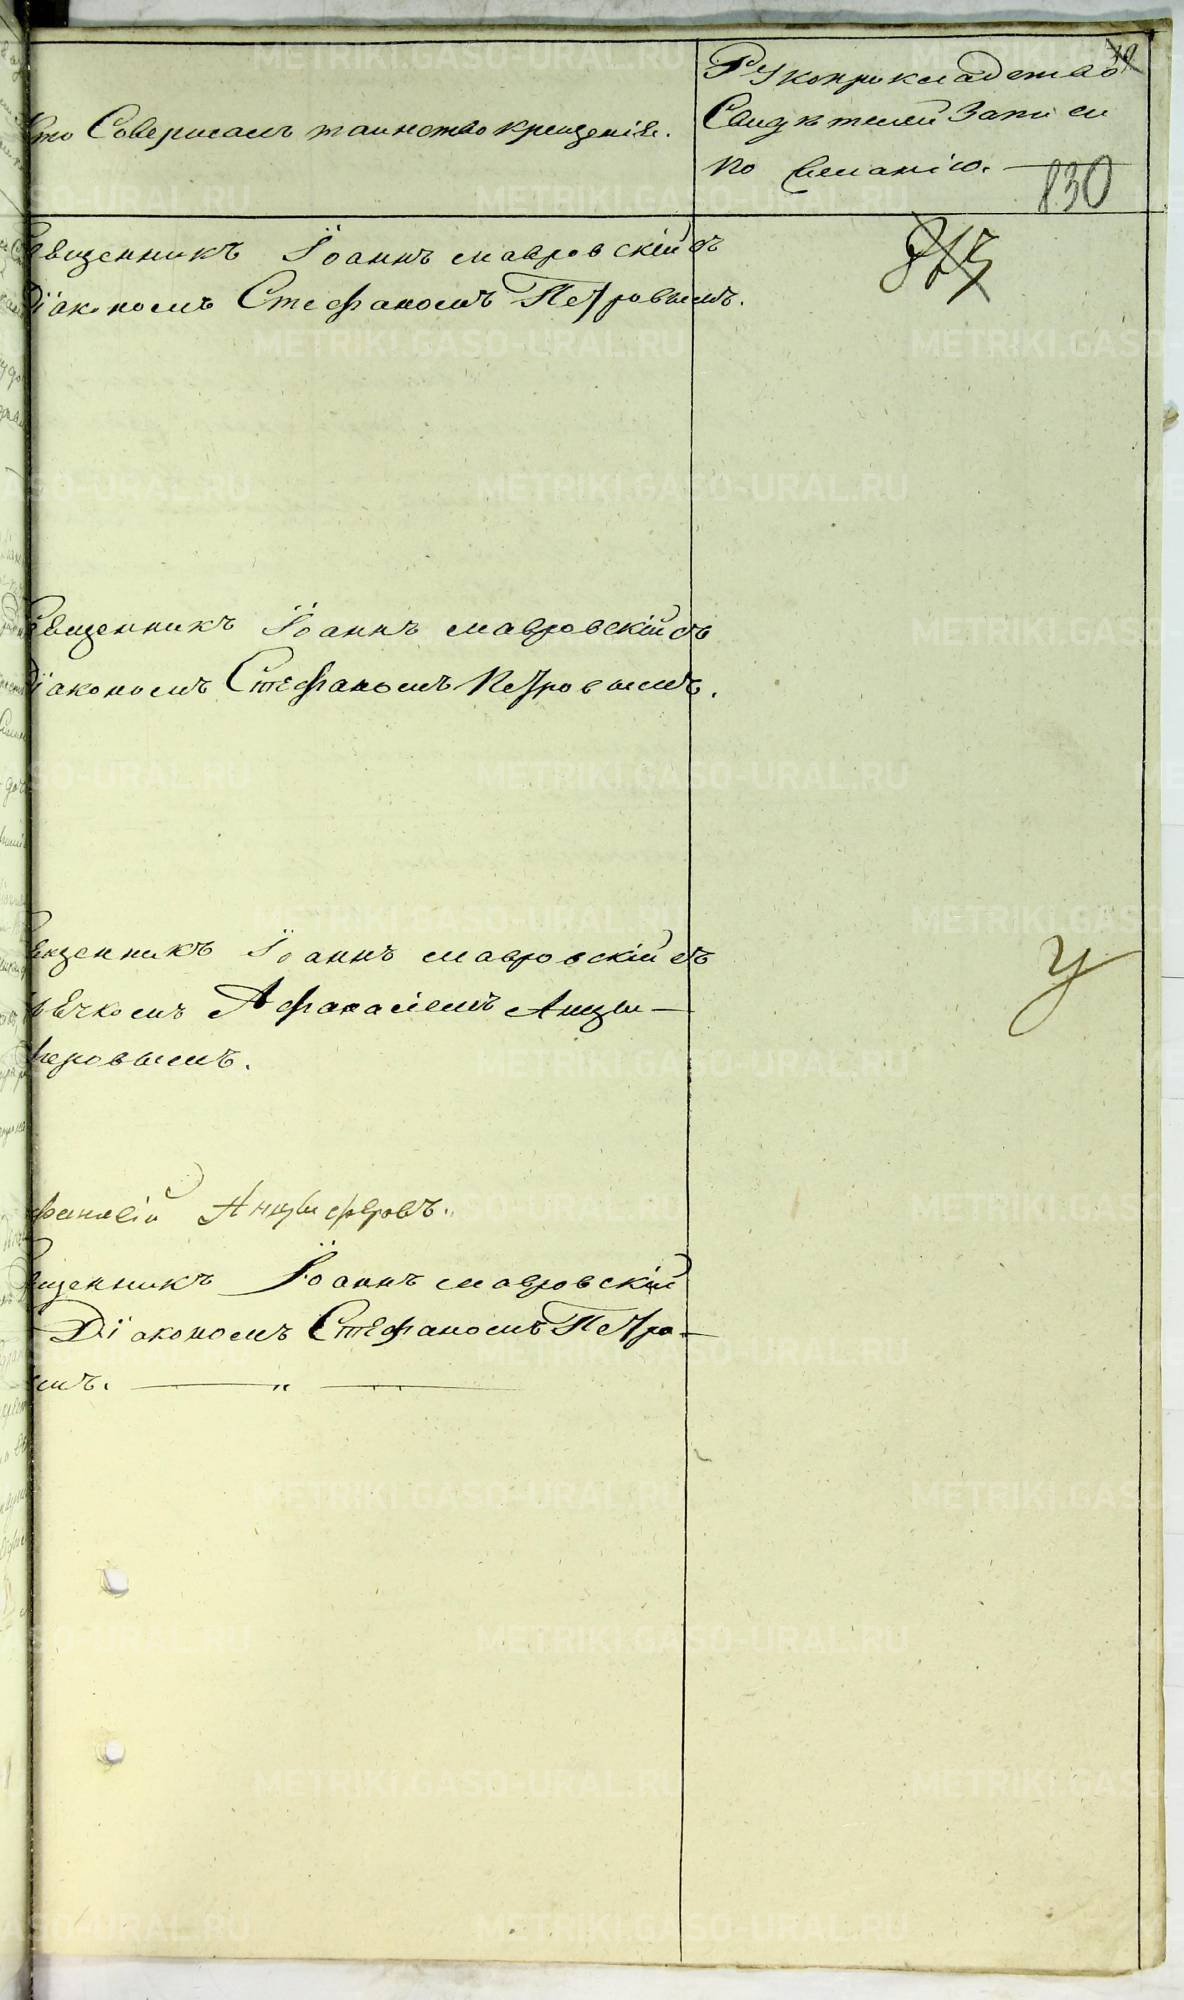 Кто Совершалъ таинство крещенія.
Рукоприкладство
Свидѣтелей Записи
по Желанію.
830
Священникъ Іоаннъ мавровскій съ
Діакономъ Стефаномъ Петровымъ.
Священникъ Іоаннъ мавровскій съ
Діакономъ Стефаномъ Петровымъ.
Священникъ Іоаннъ мавровскій съ
Афанасіемъ Анцы—
феровымъ.
Афанасій Анцыферовъ.
Священникъ Іоаннъ мавровскій
Діакономъ Стефаномъ Петро—
вымъ. — „ —
METRIKI.GASO-URAL.RU